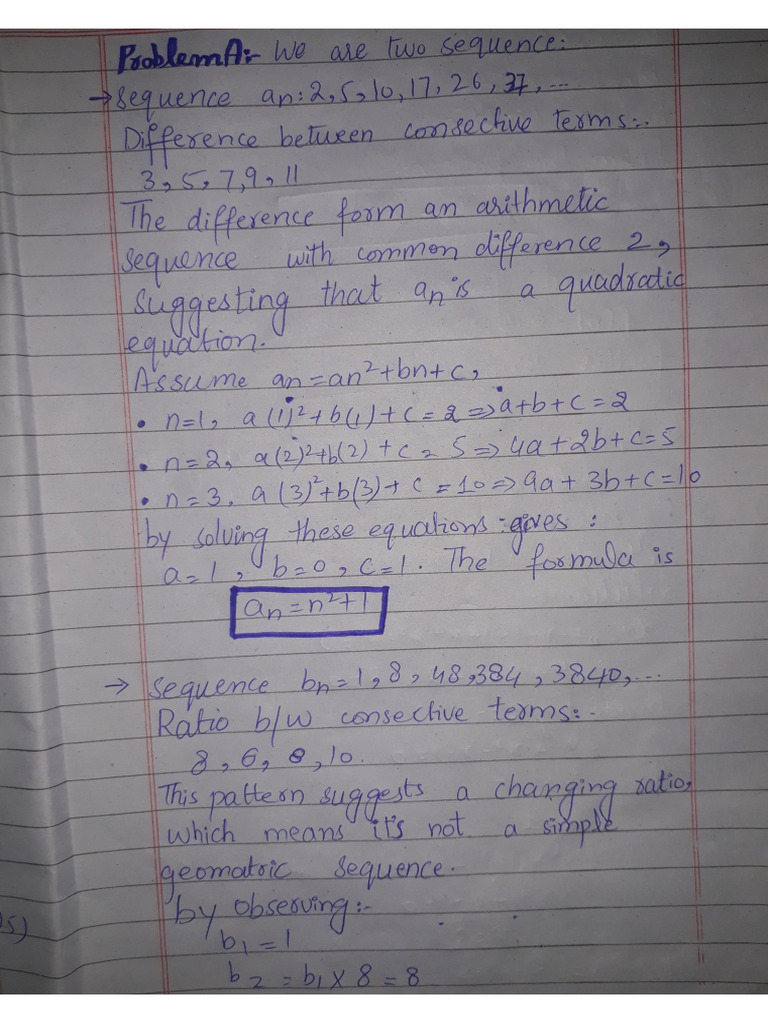 Problem A:- We are two sequence:
→ sequence an: 2, 5, 10, 17, 26, 37, ...
Difference between consective terms:-
3, 5, 7, 9, 11
The difference form an arithmetic
sequence with common difference 2,
suggesting that an is a quadradic
equation.
Assume an = an²+bn+c,
• n=1, a(1)²+b(1)+c=2 ⇒ a+b+c=2
• n=2, a(2)²+b(2)+c=5 ⇒ 4a+2b+c=5
• n=3, a(3)²+b(3)+c=10 ⇒ 9a+3b+c=10
by solving these equations :gives :
a=1, b=0, c=1. The formula is
an = n²+1
→ sequence bn = 1, 8, 48, 384, 3840, ...
Ratio b/w consective terms:-
8, 6, 8, 10.
This pattern suggests a changing ratio,
which means it's not a simple
geomatric sequence.
by observing:-
5)
b1 = 1
b2 = b1 × 8 = 8